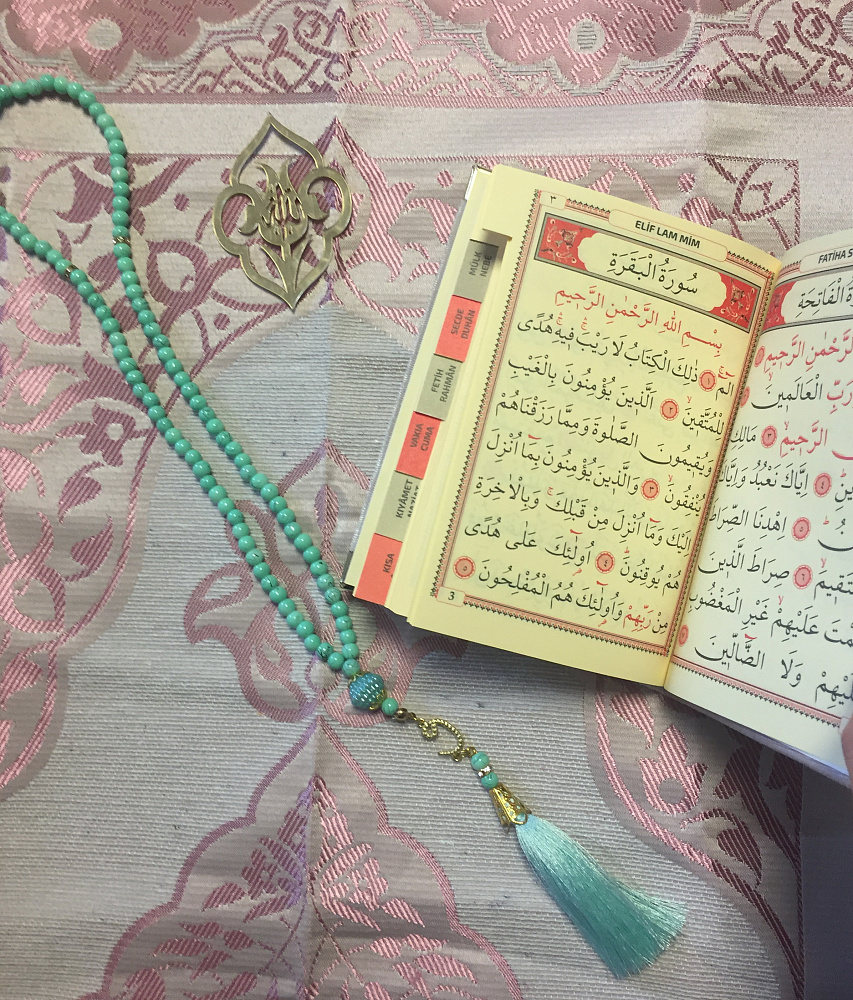 FATİHA S
الْفَاتِحَةِ
الرَّحْمٰنِ الرَّحِيمِ ١
رَبِّ الْعَالَمِينَ ٢
الرَّحِيمِۙ ٣ مَالِكِ
٤ اِيَّاكَ نَعْبُدُ وَاِيَّاكَ
٥ اِهْدِنَا الصِّرَاطَ
٦ صِرَاطَ الَّذِينَ
عَلَيْهِمْ غَيْرِ الْمَغْضُوبِ
وَلَا الضَّالِّينَ ٧
٣
ELİF LAM MİM
سُورَةُ الْبَقَرَةِ
بِسْمِ اللّٰهِ الرَّحْمٰنِ الرَّحِيمِ
الٓمٓۚ ١ ذٰلِكَ الْكِتَابُ لَا رَيْبَۚ فِيهِۚ هُدًى
لِلْمُتَّقِينَۙ ٢ اَلَّذِينَ يُؤْمِنُونَ بِالْغَيْبِ
وَيُقِيمُونَ الصَّلٰوةَ وَمِمَّا رَزَقْنَاهُمْ
يُنْفِقُونَۙ ٣ وَالَّذِينَ يُؤْمِنُونَ بِمَٓا اُنْزِلَ
اِلَيْكَ وَمَٓا اُنْزِلَ مِنْ قَبْلِكَۚ وَبِالْاٰخِرَةِ
هُمْ يُوقِنُونَۜ ٤ اُو۬لٰٓئِكَ عَلٰى هُدًى
مِنْ رَبِّهِمْ وَاُو۬لٰٓئِكَ هُمُ الْمُفْلِحُونَ ٥
3
MÜLK
NEBE
SECDE
DUHÂN
FETİH
RAHMÂN
VAKIA
CUMA
KIYÂMET
KISA